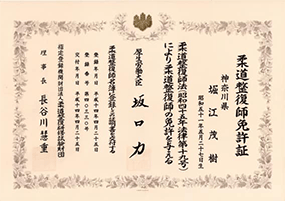 柔道整復師免許証
神奈川県
堀江茂樹
昭和五十一年五月二十七日生
柔道整復師法(昭和四十五年法律第十九号)
により柔道整復師の免許を与える
厚生労働大臣 坂口力
柔道整復師名簿に登録した
登録年月日 平成十四年四月二十五日
交付年月日 平成十四年四月二十五日
指定登録機関財団法人柔道整復研修試験財団
理事長 長谷川慧重